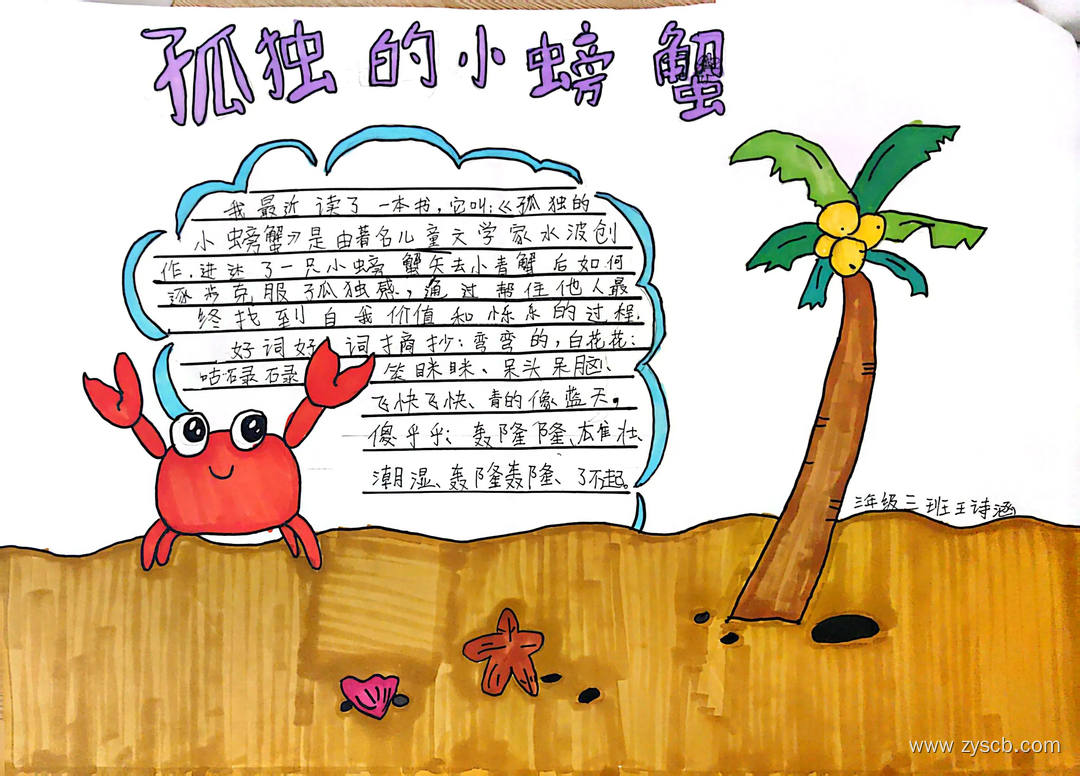 孤独的小螃蟹
我最近读了一本书,它叫:《孤独的
小螃蟹》是由著名儿童文学家冰波创
作.进述了一只小螃蟹失去小青蟹后如何
逐步克服孤独感,通过帮住他人最
终找到自我价值和快乐的过程.
好词好词摘抄:弯弯的,白花花:
咕碌碌 笑眯眯、呆头呆脑、
飞快飞快、青的像蓝天。
傻乎乎;轰隆隆、雄壮、
潮湿、轰隆轰隆、了不起。
三年级三班王诗涵
www.zyscb.com